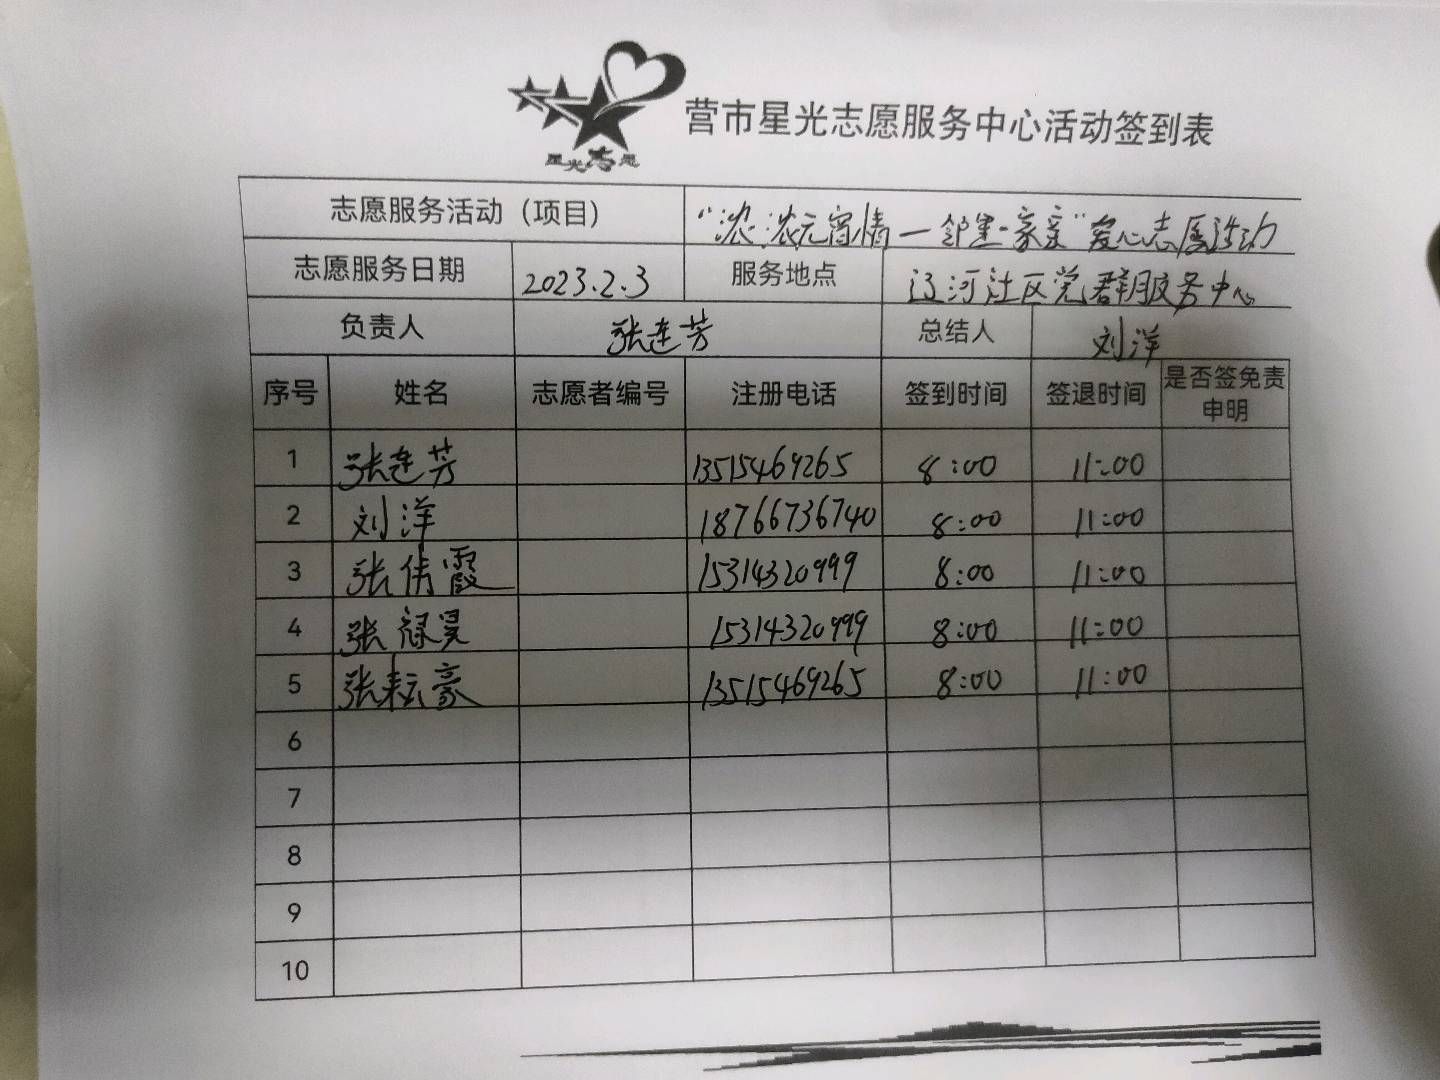 星光志愿
营市星光志愿服务中心活动签到表
志愿服务活动（项目） “浓浓元宵情一邻里一家亲”爱心志愿活动
志愿服务日期 2023.2.3 服务地点 辽河社区党群服务中心
负责人 张连芳 总结人 刘洋
序号 姓名 志愿者编号 注册电话 签到时间 签退时间 是否签免责申明
1 张连芳 13515469265 8:00 11:00
2 刘洋 18766736740 8:00 11:00
3 张倩霞 15314320999 8:00 11:00
4 张禄昊 15314320999 8:00 11:00
5 张耘豪 13515469265 8:00 11:00
6
7
8
9
10